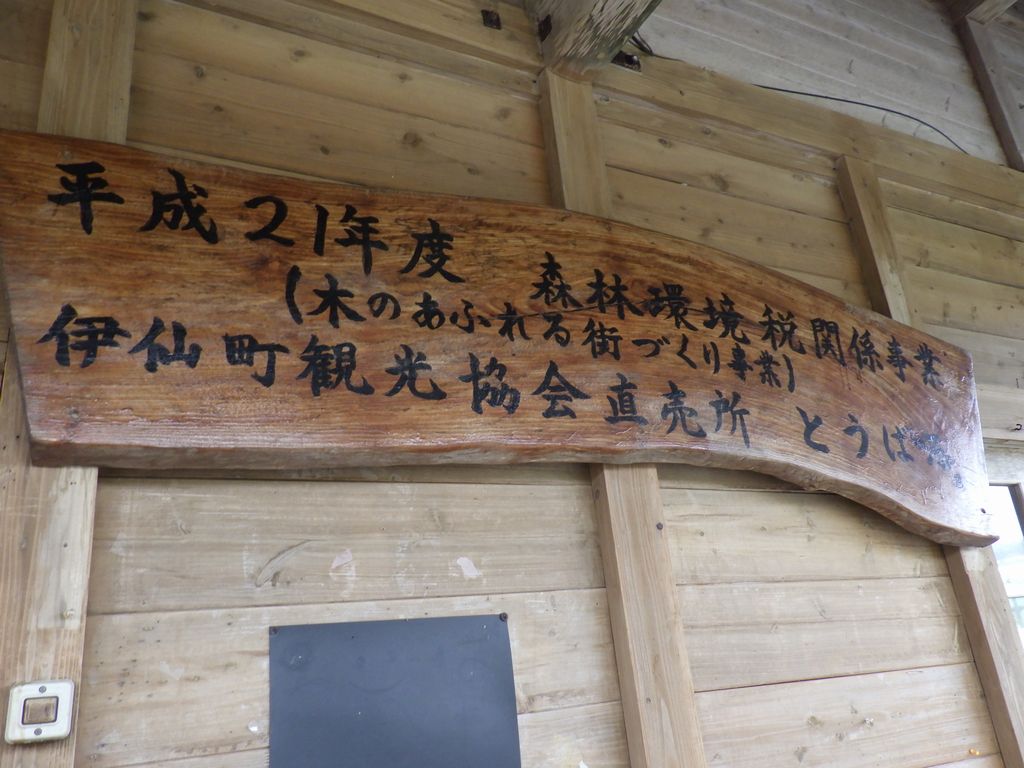 平成21年度 森林環境税関係事業
(木のあふれる街づくり事業)
伊仙町観光協会直売所 とうばる